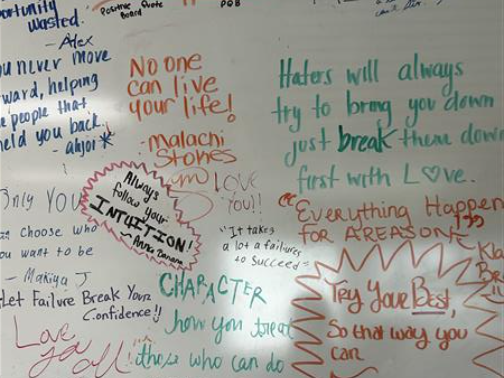 wasted.
- Alex
Positive Quote
Board
POB
you never move
helping
people that
held you back.
No one
can live
your life!
- Malachi
Stokes
Haters will always
try to bring you down
just break them down
first with L♡ve.
Always
follow your
INTUITION!
~ Anna Banana
I LOVE
YOU!!
Only YOU
can choose who
you want to be
- Makiya J
"It takes
a lot a failures
to succeed"
"Everything Happens
FOR A REASON!"
Let Failure Break Your
Confidence!!
Love
you all!
CHARACTER
how you treat
those who can do
Try Your Best,
So that way you
can